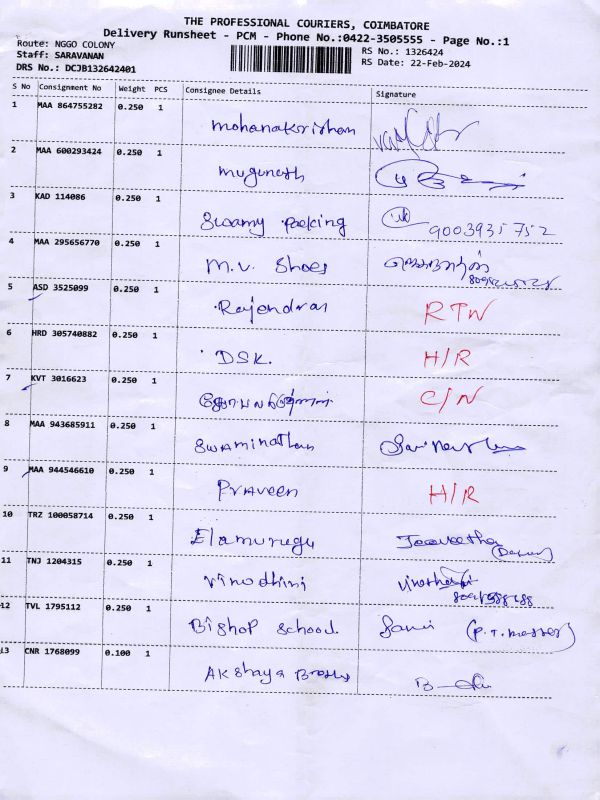 THE PROFESSIONAL COURIERS, COIMBATORE
Delivery Runsheet - PCM - Phone No.:0422-3505555 - Page No.:1
Route: NGGO COLONY
RS No.: 1326424
Staff: SARAVANAN
RS Date: 22-Feb-2024
DRS No.: DCJB132642401
S No Consignment No Weight PCS Consignee Details Signature
1 MAA 864755282 0.250 1
2 MAA 600293424 0.250 1
3 KAD 114086 0.250 1 Swamy Packing 9003935752
4 MAA 295656770 0.250 1 M.V. Shoes
5 ASD 3525099 0.250 1 Rajendran RTW
6 HRD 305740882 0.250 1 DSK. H/R
7 KVT 3016623 0.250 1 C/N
8 MAA 943685911 0.250 1 Swaminathan
9 MAA 944546610 0.250 1 Praveen H/R
10 TRZ 100058714 0.250 1
11 TNJ 1204315 0.250 1 Vinodhini
12 TVL 1795112 0.250 1 Bishop School
13 CNR 1768099 0.100 1 Akshaya